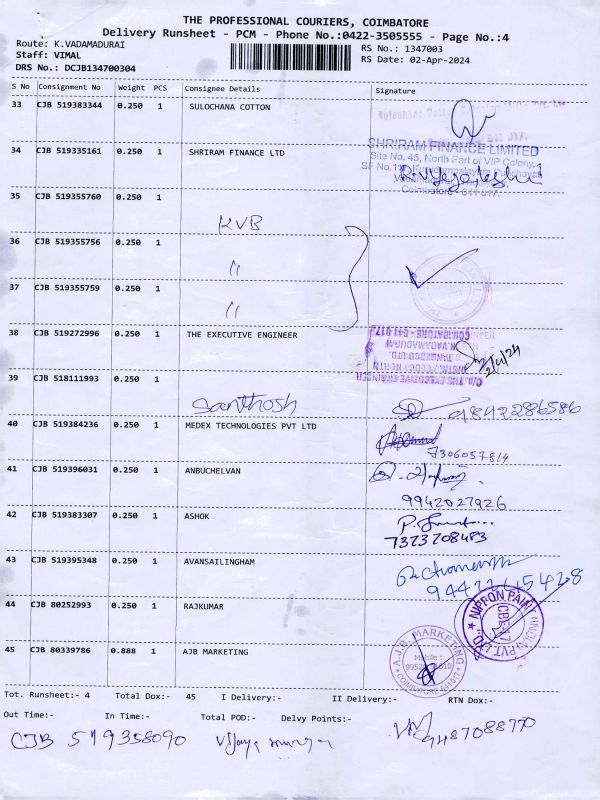 THE PROFESSIONAL COURIERS, COIMBATORE
Delivery Runsheet - PCM - Phone No.:0422-3505555 - Page No.:4
Route: K.VADAMADURAI
Staff: VIMAL
DRS No.: DCJB134700304
RS No.: 1347003
RS Date: 02-Apr-2024
S No Consignment No Weight PCS Consignee Details Signature
33 CJB 519383344 0.250 1 SULOCHANA COTTON
34 CJB 519335161 0.250 1 SHRIRAM FINANCE LTD
SHRIRAM FINANCE LIMITED
Site No. 45, North Part of VIP Colony,
Coimbatore - 641 017.
35 CJB 519355760 0.250 1
KVB
36 CJB 519355756 0.250 1
"
37 CJB 519355759 0.250 1
"
38 CJB 519272996 0.250 1 THE EXECUTIVE ENGINEER
COIMBATORE - 641 017
K.VADAMADURAI
TANGEDCO LTD.
O/o. THE EXECUTIVE ENGINEER
2/4/24
39 CJB 518111993 0.250 1
Santhosh
9842286586
40 CJB 519384236 0.250 1 MEDEX TECHNOLOGIES PVT LTD
7306057814
41 CJB 519396031 0.250 1 ANBUCHELVAN
9942027926
42 CJB 519383307 0.250 1 ASHOK
7373708483
43 CJB 519395348 0.250 1 AVANSAILINGHAM
44 CJB 80252993 0.250 1 RAJKUMAR
NIPPON PAINT
45 CJB 80339786 0.888 1 AJB MARKETING
A.J.B. MARKETING
Mobile :
COIMBATORE-641 017
Tot. Runsheet:- 4 Total Dox:- 45 I Delivery:- II Delivery:- RTN Dox:-
Out Time:- In Time:- Total POD:- Delvy Points:-
CJB 519358090 Vijaya murugan
9487088770